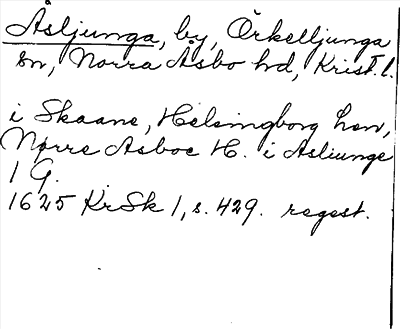 Åsljunga, by, Örkelljunga
sn, Norra Åsbo hd, Krist. l.
i Skaane, Helsingborg Len,
Nørre Asboe H. i Asliunge
1 G.
1625 KrSk 1, s. 429. regest.